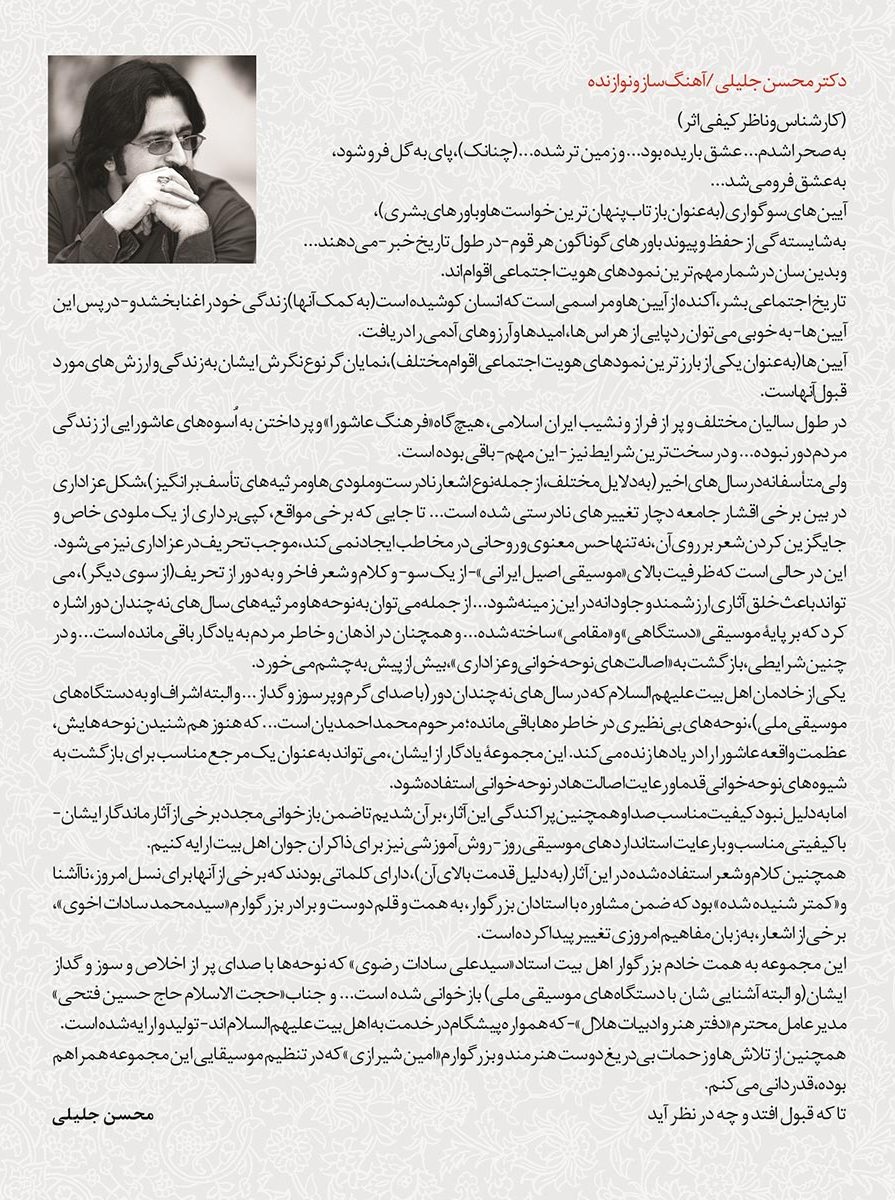 دکتر محسن جلیلی/آهنگ‌ساز و نوازنده
(کارشناس و ناظر کیفی اثر)
به صحرا شدم... عشق باریده بود... و زمین تر شده... (چنانک)، پای به گل فرو شود،
به عشق فرو می‌شد...
آیین‌های سوگواری (به‌عنوان بازتاب پنهان‌ترین خواست‌ها و باورهای بشری)،
به شایسته‌گی از حفظ و پیوند باورهای گوناگون هر قوم -در طول تاریخ خبر- می‌دهند...
و بدین‌سان در شمار مهم‌ترین نمودهای هویت اجتماعی اقوام‌اند.
تاریخ اجتماعی بشر، آکنده از آیین‌ها و مراسمی است که انسان کوشیده است (به کمک آنها) زندگی خود را غنا بخشد و -در پس این
آیین‌ها- به خوبی می‌توان ردپایی از هراس‌ها، امیدها و آرزوهای آدمی را دریافت.
آیین‌ها (به‌عنوان یکی از بارزترین نمودهای هویت اجتماعی اقوام مختلف)، نمایان‌گر نوع نگرش ایشان به زندگی و ارزش‌های مورد
قبول آنهاست.
در طول سالیان مختلف و پر از فراز و نشیب ایران اسلامی، هیچ‌گاه «فرهنگ عاشورا» و پرداختن به اُسوه‌های عاشورایی از زندگی
مردم دور نبوده... و در سخت‌ترین شرایط نیز -این مهم- باقی بوده است.
ولی متأسفانه در سال‌های اخیر (به دلایل مختلف، از جمله نوع اشعار نادرست و ملودی‌ها و مرثیه‌های تأسف‌برانگیز)، شکل عزاداری
در بین برخی اقشار جامعه دچار تغییرهای نادرستی شده است... تا جایی که برخی مواقع، کپی‌برداری از یک ملودی خاص و
جایگزین کردن شعر بر روی آن، نه تنها حس معنوی و روحانی در مخاطب ایجاد نمی‌کند، موجب تحریف در عزاداری نیز می‌شود.
این در حالی است که ظرفیت بالای «موسیقی اصیل ایرانی» -از یک سو- و کلام و شعر فاخر و به دور از تحریف (از سوی دیگر)، می
تواند باعث خلق آثاری ارزشمند و جاودانه در این زمینه شود... از جمله می‌توان به نوحه‌ها و مرثیه‌های سال‌های نه چندان دور اشاره
کرد که بر پایهٔ موسیقی «دستگاهی» و «مقامی» ساخته شده... و همچنان در اذهان و خاطر مردم به یادگار باقی مانده است... و در
چنین شرایطی، بازگشت به «اصالت‌های نوحه‌خوانی و عزاداری»، بیش از پیش به چشم می‌خورد.
یکی از خادمان اهل بیت علیهم السلام که در سال‌های نه چندان دور (با صدای گرم و پرسوز و گداز... و البته اشراف او به دستگاه‌های
موسیقی ملی)، نوحه‌های بی‌نظیری در خاطره‌ها باقی مانده؛ مرحوم محمد احمدیان است... که هنوز هم شنیدن نوحه‌هایش،
عظمت واقعه عاشورا را در یادها زنده می‌کند. این مجموعهٔ یادگار از ایشان، می‌تواند به‌عنوان یک مرجع مناسب برای بازگشت به
شیوه‌های نوحه‌خوانی قدما و رعایت اصالت‌ها در نوحه‌خوانی استفاده شود.
اما به دلیل نبود کیفیت مناسب صدا و همچنین پراکندگی این آثار، بر آن شدیم تا ضمن بازخوانی مجدد برخی از آثار ماندگار ایشان -
با کیفیتی مناسب و با رعایت استانداردهای موسیقی روز- روش آموزشی نیز برای ذاکران جوان اهل بیت ارایه کنیم.
همچنین کلام و شعر استفاده شده در این آثار (به دلیل قدمت بالای آن)، دارای کلماتی بودند که برخی از آنها برای نسل امروز، ناآشنا
و «کمتر شنیده شده» بود که ضمن مشاوره با استادان بزرگوار، به همت و قلم دوست و برادر بزرگوارم «سیدمحمد سادات اخوی»،
برخی از اشعار، به زبان مفاهیم امروزی تغییر پیدا کرده است.
این مجموعه به همت خادم بزرگوار اهل بیت استاد «سیدعلی سادات رضوی» که نوحه‌ها با صدای پر از اخلاص و سوز و گداز
ایشان (و البته آشنایی شان با دستگاه‌های موسیقی ملی) بازخوانی شده است... و جناب «حجت الاسلام حاج حسین فتحی»
مدیر عامل محترم «دفتر هنر و ادبیات هلال» -که همواره پیشگام در خدمت به اهل بیت علیهم السلام‌اند- تولید و ارایه شده است.
همچنین از تلاش‌ها و زحمات بی‌دریغ دوست هنرمند و بزرگوارم «امین شیرازی» که در تنظیم موسیقایی این مجموعه همراهم
بوده، قدردانی می‌کنم.
تا که قبول افتد و چه در نظر آید
محسن جلیلی